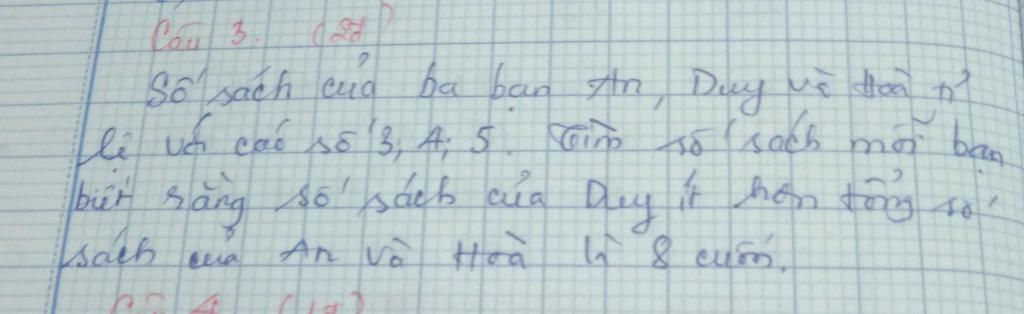 Câu 3. (2đ)
Số sách của ba bạn An, Duy và Hoà tỉ
lệ với các số 3, 4, 5. Tìm số sách mỗi bạn
biết rằng số sách của Duy ít hơn tổng số
sách của An và Hoà là 8 cuốn.